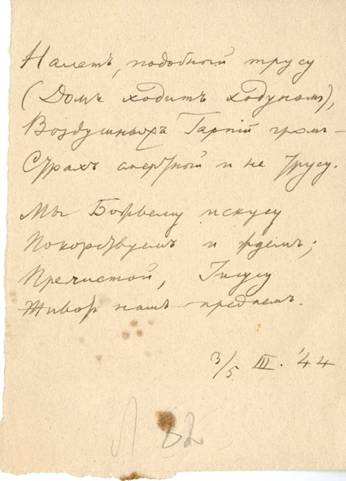 Налетъ, подобный трусу
(Домъ ходитъ ходуномъ),
Воздушныхъ Гарпій громъ –
Страхъ смертный и не трусу.
Мы Божьему искусу
Покорствуемъ и ждемъ;
Пречистой, Іисусу
Животъ нашъ предаемъ.
3/5 III. '44
82